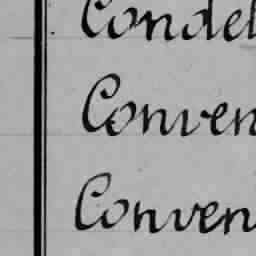 Condel
Conven
Conven